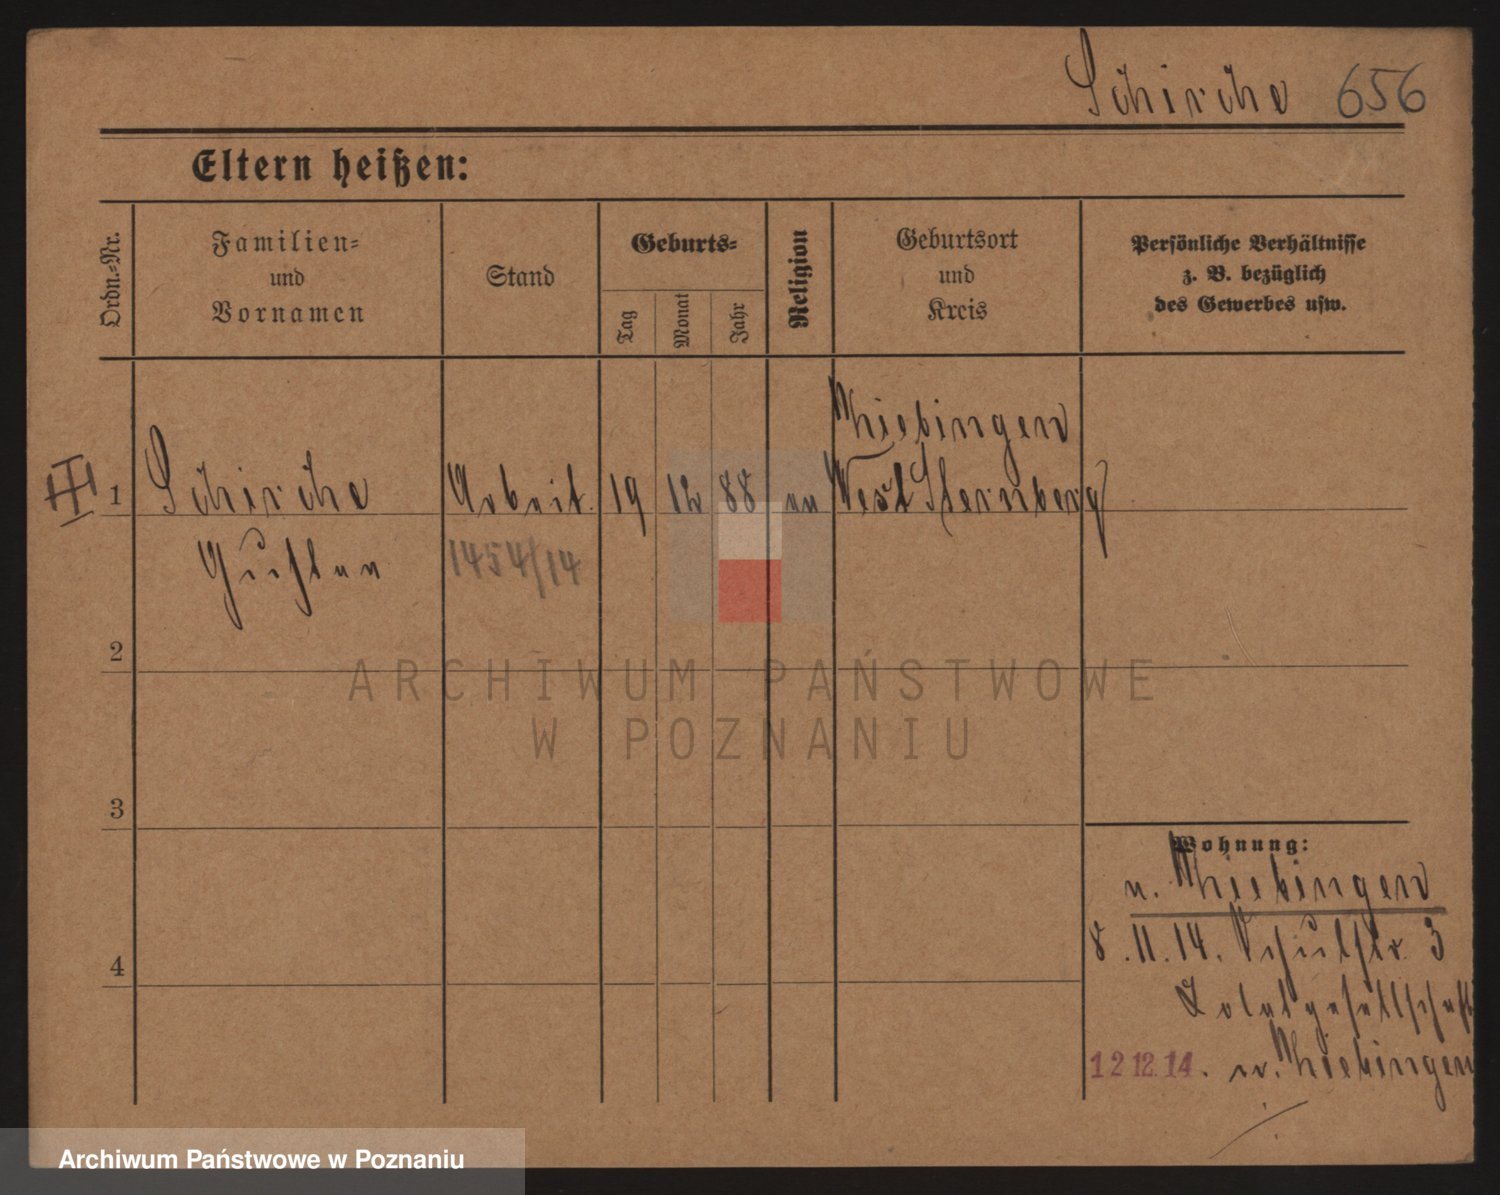 Schirche 656
Eltern heißen:
Ordn.-Nr.
Familien-
und
Vornamen
Stand
Geburts-
Tag
Monat
Jahr
Religion
Geburtsort
und
Kreis
Persönliche Verhältnisse
z. B. bezüglich
des Gewerbes usw.
III
1
Schirche
Gustav
Arbeit.
1454/14
19
12
88
ev
Thiebingen
West Sternberg
2
3
4
Wohnung:
n. Thiebingen
8.11.14. 3
12 12.14. n. Thiebingen
ARCHIWUM PAŃSTWOWE
W POZNANIU
Archiwum Państwowe w Poznaniu